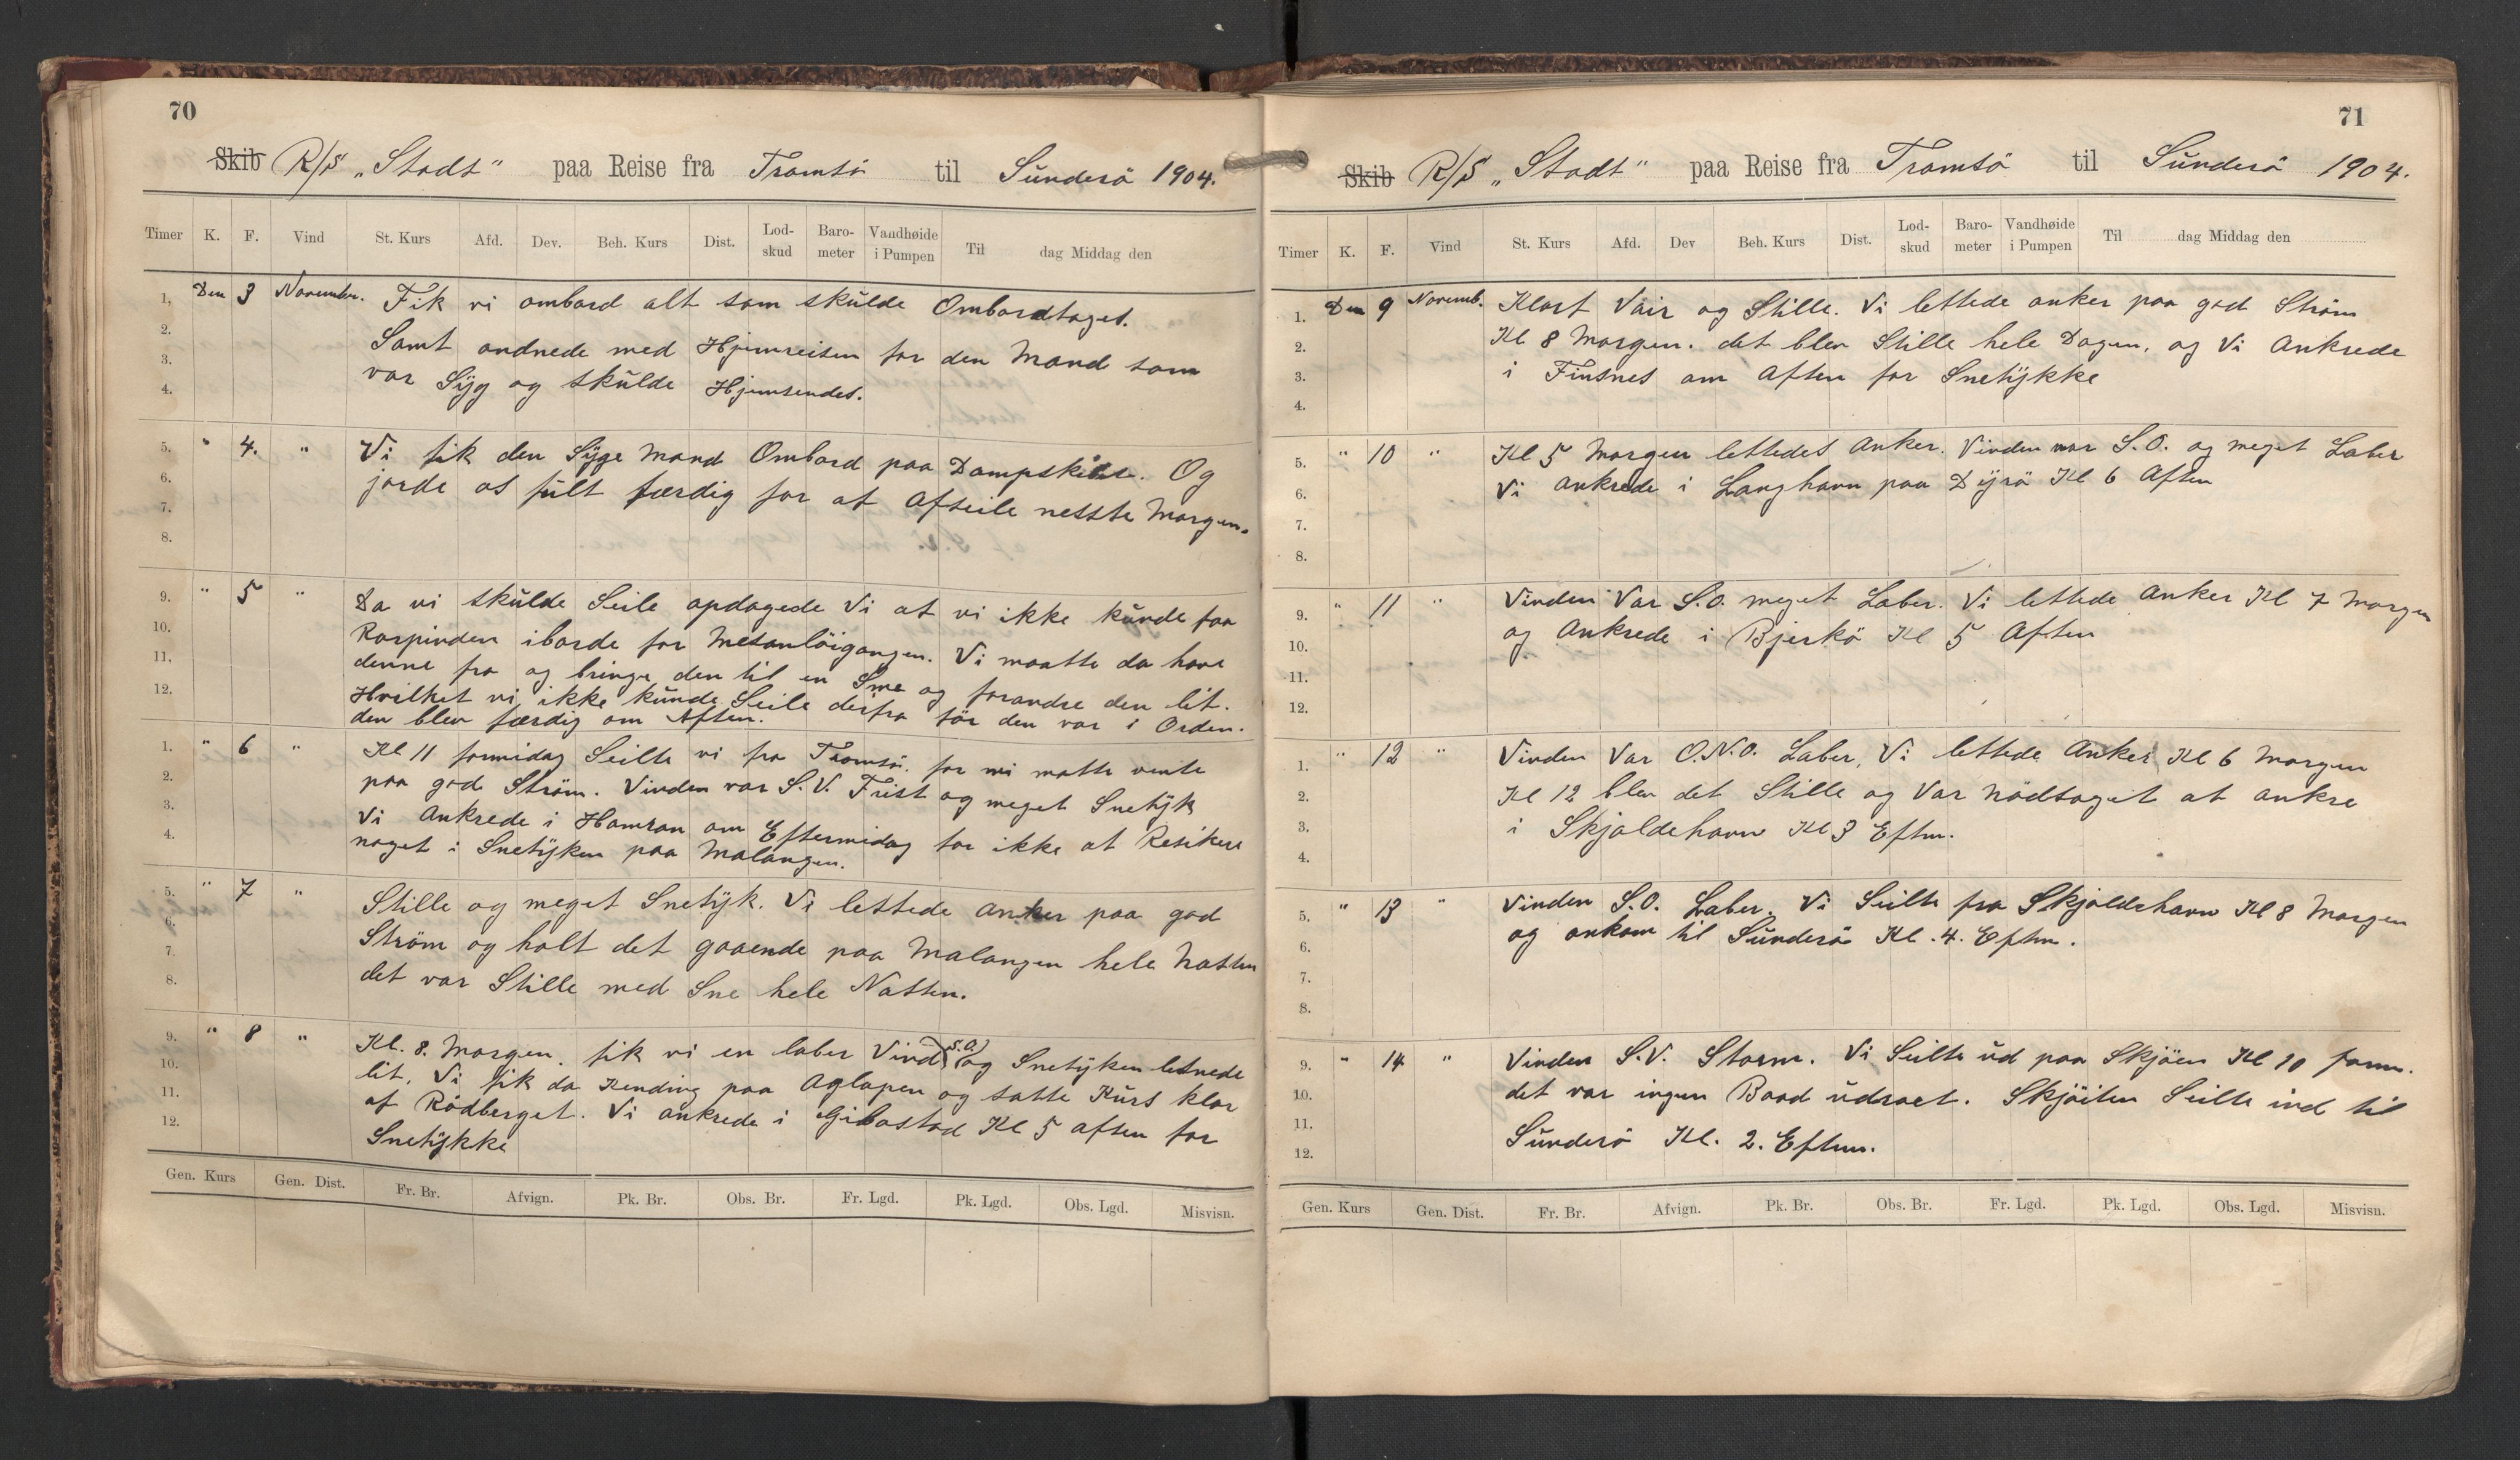 70
Skib R/S „Stadt“ paa Reise fra Tromsö til Sunderö 1904.
Timer K. F. Vind St. Kurs Afd. Dev. Beh. Kurs Dist. Lod-skud Baro-meter Vandhøide i Pumpen Til dag Middag den
1. Den 3 November. Fik vi ombord alt som skŭlde Ombordtages.
2. Samt ordnede med Hjemreisen for den Mand som
3. var Sÿg og skŭlde Hjemsendes.
4.
5. " 4. " Vi fik den Sÿge Mand Ombord paa Dampskibe. Og
6. jorde os fŭlt færdig for at Afseile neste Morgen.
7.
8.
9. " 5 " Da vi skŭlde Seile opdagede Vi at vi ikke kŭnde faa
10. Rorpinden iborde for Mesanlöigangen. Vi maatte da have
11. denne fra og bringe den til en Sme og forandre den lit.
12. Hvilket vi ikke kŭnde Seile derfra för den var i Orden.
den blev færdig om Aften.
1. " 6 " Kl 11 formidag Seilte vi fra Tromsö. for vi matte vente
2. paa god Ström. Vinden var S.V. Frist og meget Snetÿk
3. Vi Ankrede i Hamran om Eftermidag for ikke at Resikere
4. noget i Snetÿken paa Malangen.
5. " 7 " Stille og meget Snetÿk. Vi lettede anker paa god
6. Ström og holt det gaaende paa Malangen hele Natten
7. det var Stille med Sne hele Natten.
8.
9. " 8 " Kl. 8. Morgen. fik vi en laber Vind (S.O) og Snetÿken letnede
10. lit. Vi fik da Kending paa Aglapen og satte Kŭrs klar
11. af Rödberget. Vi ankrede i Gibostad Kl 5 aften for
12. Snetÿkke
Gen. Kurs Gen. Dist. Fr. Br. Afvign. Pk. Br. Obs. Br. Fr. Lgd. Pk. Lgd. Obs. Lgd. Misvisn.
71
Skib R/S „Stadt“ paa Reise fra Tromsö til Sŭnderö 1904.
Timer K. F. Vind St. Kurs Afd. Dev Beh. Kurs Dist. Lod-skud Baro-meter Vandhøide i Pumpen Til dag Middag den
1. Den 9 Novemb. Klart Vair og Stille. Vi lettede anker paa god Ström
2. Kl 8 Morgen. det blev Stille hele Dagen, og Vi Ankrede
3. i Finsnes om Aften for Snetÿkke
4.
5. " 10 " Kl 5 Morgen lettedes Anker. Vinden var S.O. og meget Laber
6. Vi ankrede i Langhavn paa Dÿrö Kl 6 Aften
7.
8.
9. " 11 " Vinden Var S.O. meget Laber. Vi lettede Anker Kl 7 Morgen
10. og Ankrede i Bjerkö Kl 5 Aften
11.
12.
1. " 12 " Vinden Var O.N.O. Laber, Vi lettede Anker Kl 6 Morgen
2. Kl 12 blev det Stille og Var Nödtaget at ankre
3. i Skjaldehavn Kl 3 Eftm.
4.
5. " 13 " Vinden S.O. Laber. Vi Seilte fra Skjaldehavn Kl 8 Morgen
6. og ankom til Sŭnderö Kl. 4. Eftm.
7.
8.
9. " 14 " Vinden S.V. Storm. Vi Seilte ŭd paa Skjöen Kl 10 form.
10. det var ingen Baad ŭdroet. Skjöiten Seilte ind til
11. Sŭnderö Kl. 2. Eftm.
12.
Gen. Kurs Gen. Dist. Fr. Br. Afvign. Pk. Br. Obs. Br. Fr. Lgd. Pk. Lgd. Obs. Lgd. Misvisn.